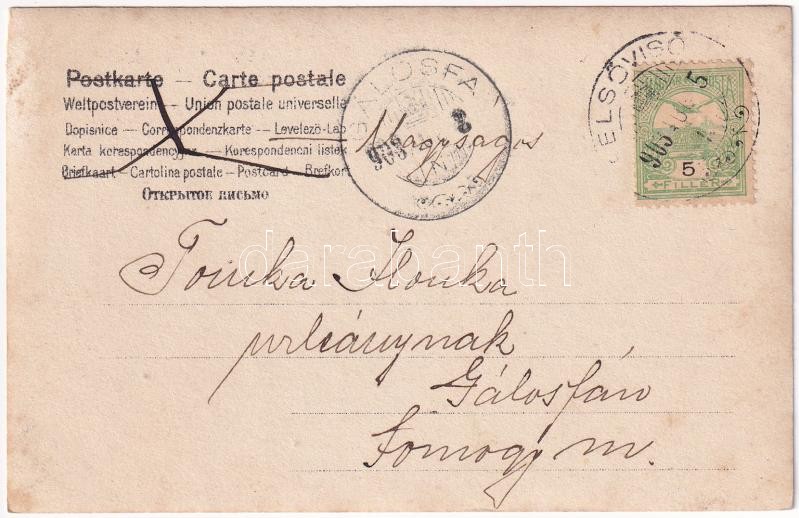 Postkarte — Carte postale
Weltpostverein — Union postale universelle
Dopisnice — Correspondenzkarte — Levelező-Lap
Karta korespondencyjna — Korespondencni listek
Briefkaart — Cartolina postale — Postcard — Brefkort
Открытое письмо
GÁLOSFA
903
Nagyságos
FELSŐVISÓ
903 5
MAGYAR
5
FILLÉR
darabanth
Tomka Ilonka
urleánynak
Gálosfán
Somogy m.